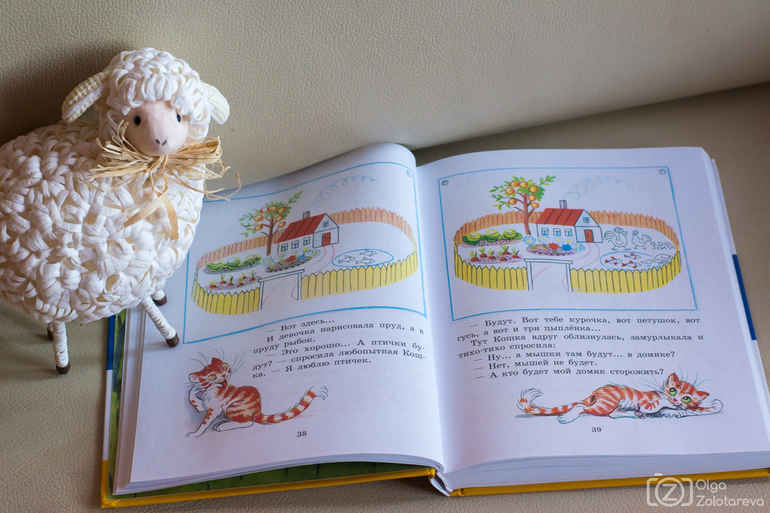 — Вот здесь...
И девочка нарисовала пруд, а в
пруду рыбок.
— Это хорошо... А птички бу-
дут? — спросила любопытная Кош-
ка. — Я люблю птичек.
38
— Будут. Вот тебе курочка, вот петушок, вот
гусь, а вот и три цыплёнка...
Тут Кошка вдруг облизнулась, замурлыкала и
тихо-тихо спросила:
— Ну... а мышки там будут... в домике?
— Нет, мышей не будет.
— А кто будет мой домик сторожить?
39
Olga
Zolotareva